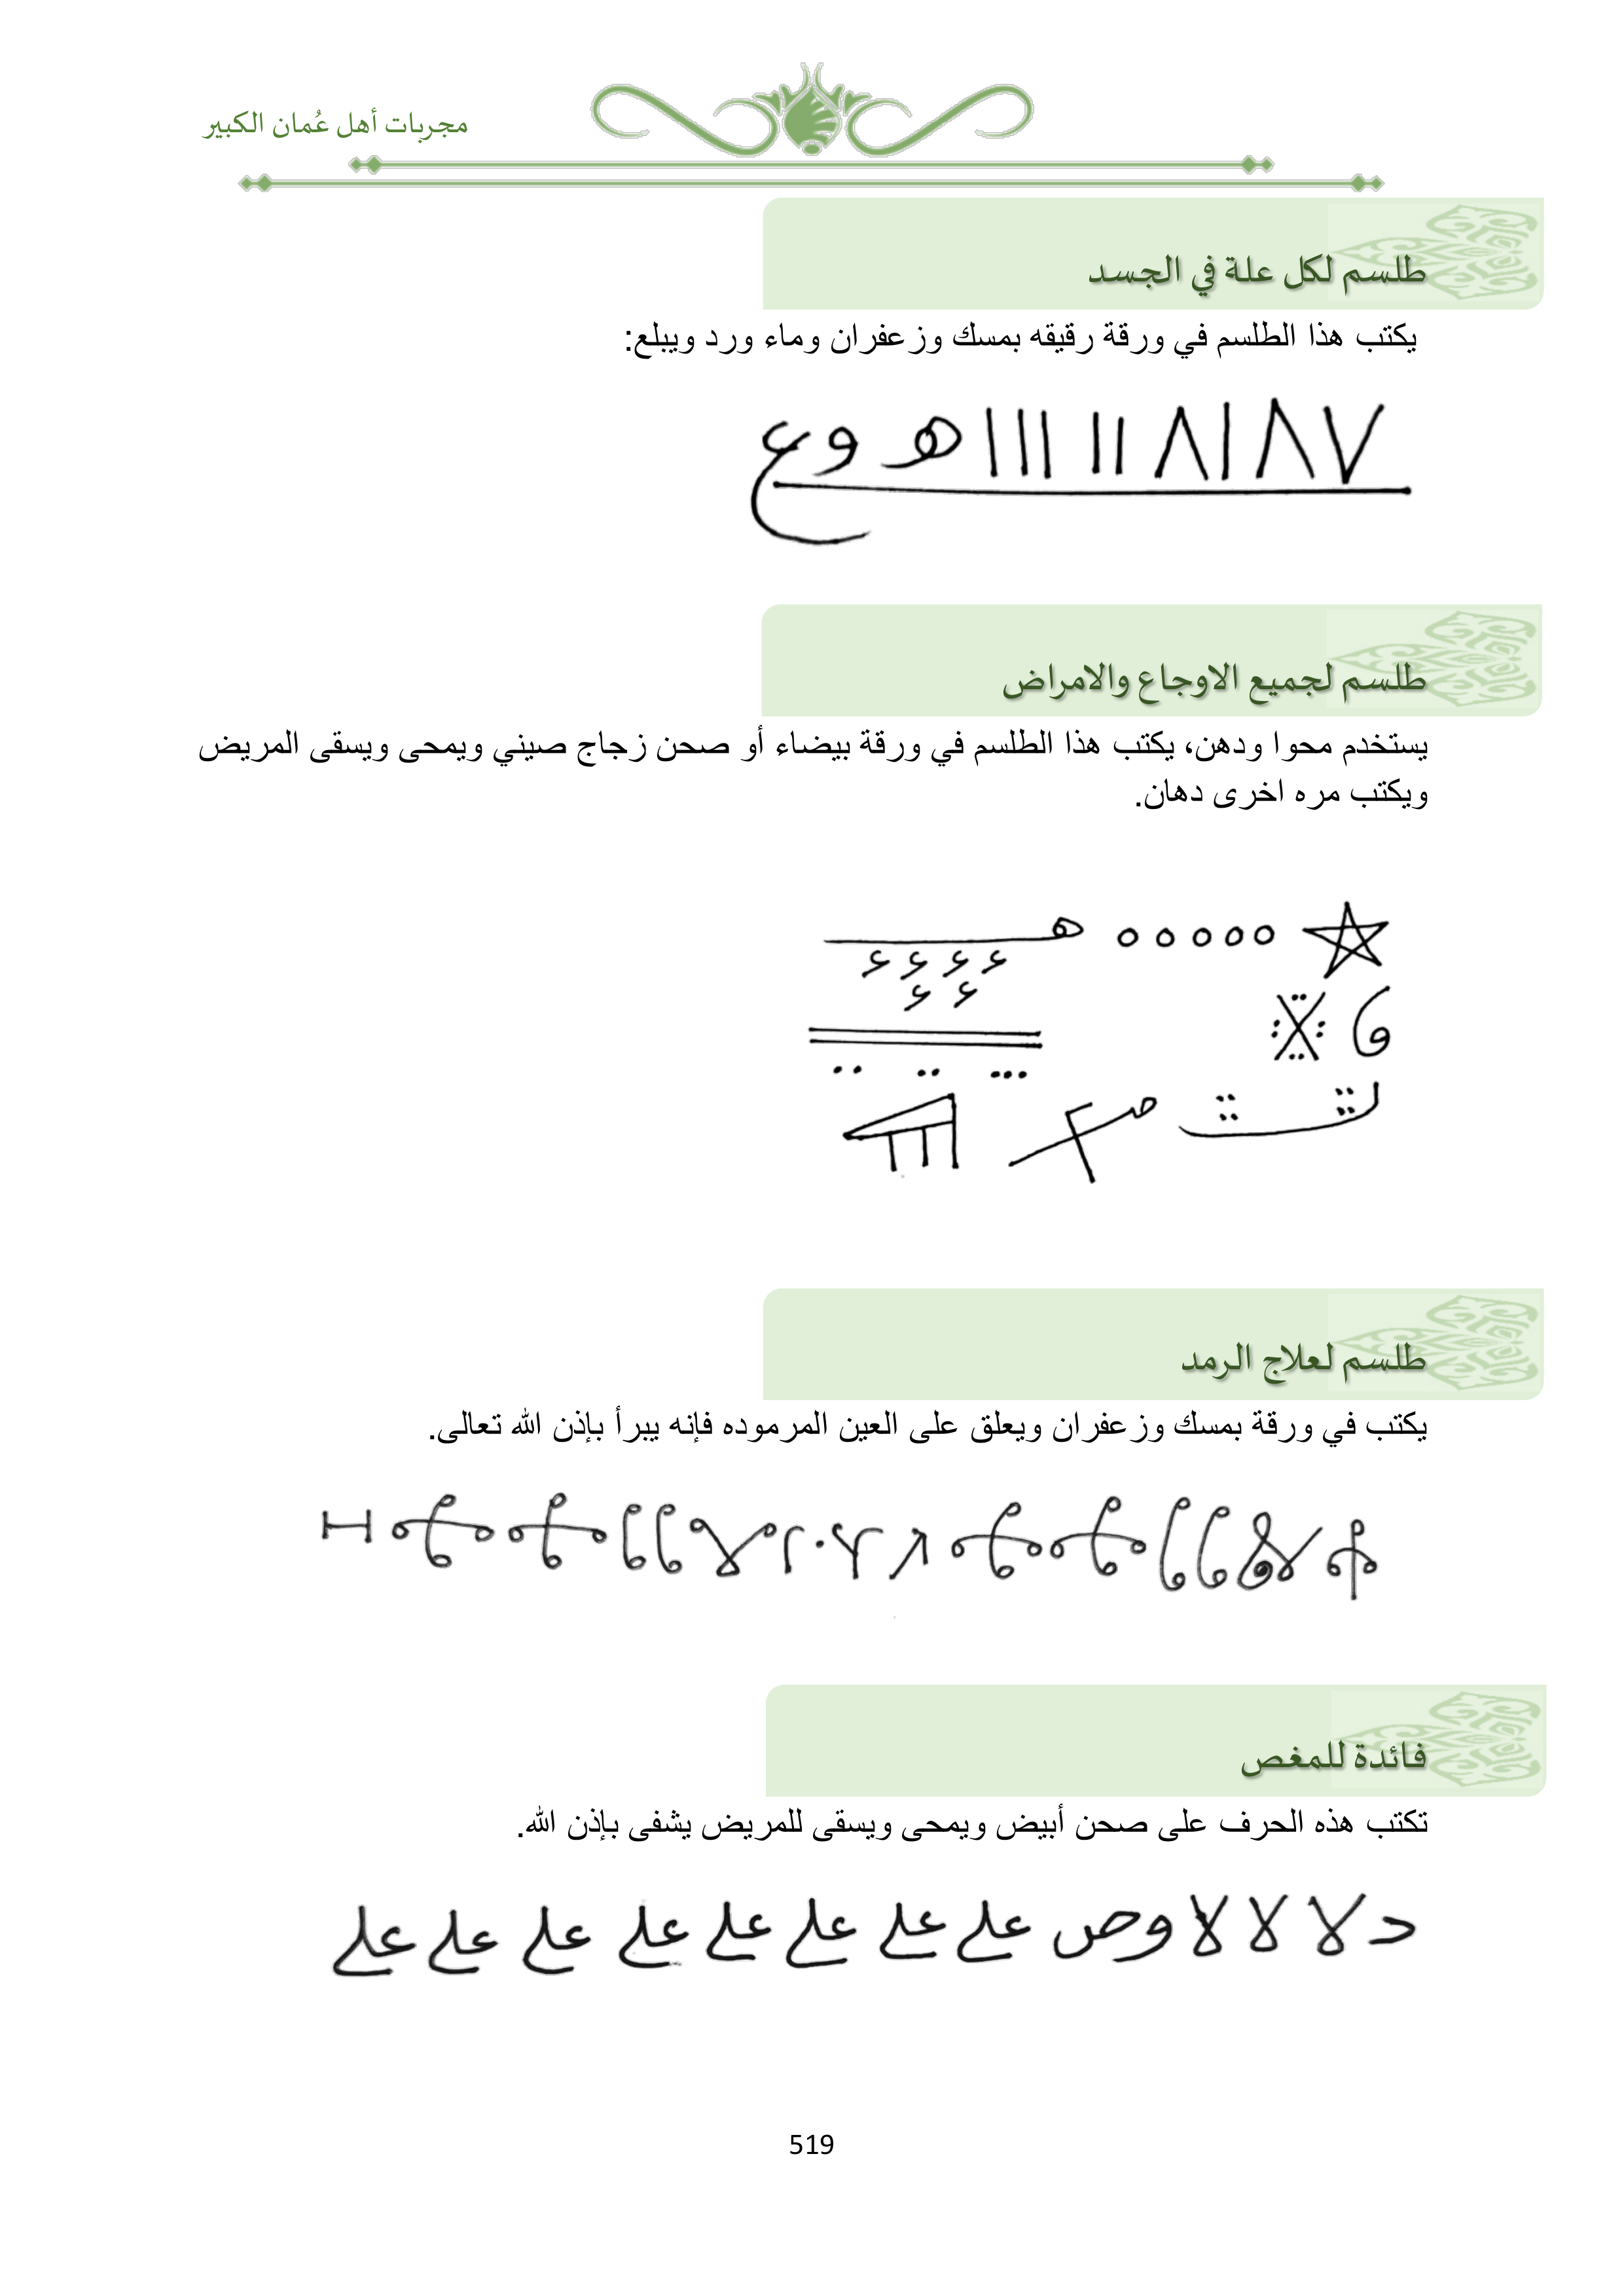 مجربات أهل عُمان الكبير
طلسم لكل علة في الجسد
يكتب هذا الطلسم في ورقة رقيقه بمسك وزعفران وماء ورد ويبلع:
٧ ٨ ١ ٨ ١١ ١١١ هـ و ع
طلسم لجميع الاوجاع والامراض
يستخدم محوا ودهن، يكتب هذا الطلسم في ورقة بيضاء أو صحن زجاج صيني ويمحى ويسقى المريض
ويكتب مره اخرى دهان.
طلسم لعلاج الرمد
يكتب في ورقة بمسك وزعفران ويعلق على العين المرموده فإنه يبرأ بإذن الله تعالى.
فائدة للمغص
تكتب هذه الحرف على صحن أبيض ويمحى ويسقى للمريض يشفى بإذن الله.
د لا لا لا وص علے علے علے علے علے علے علے علے
519